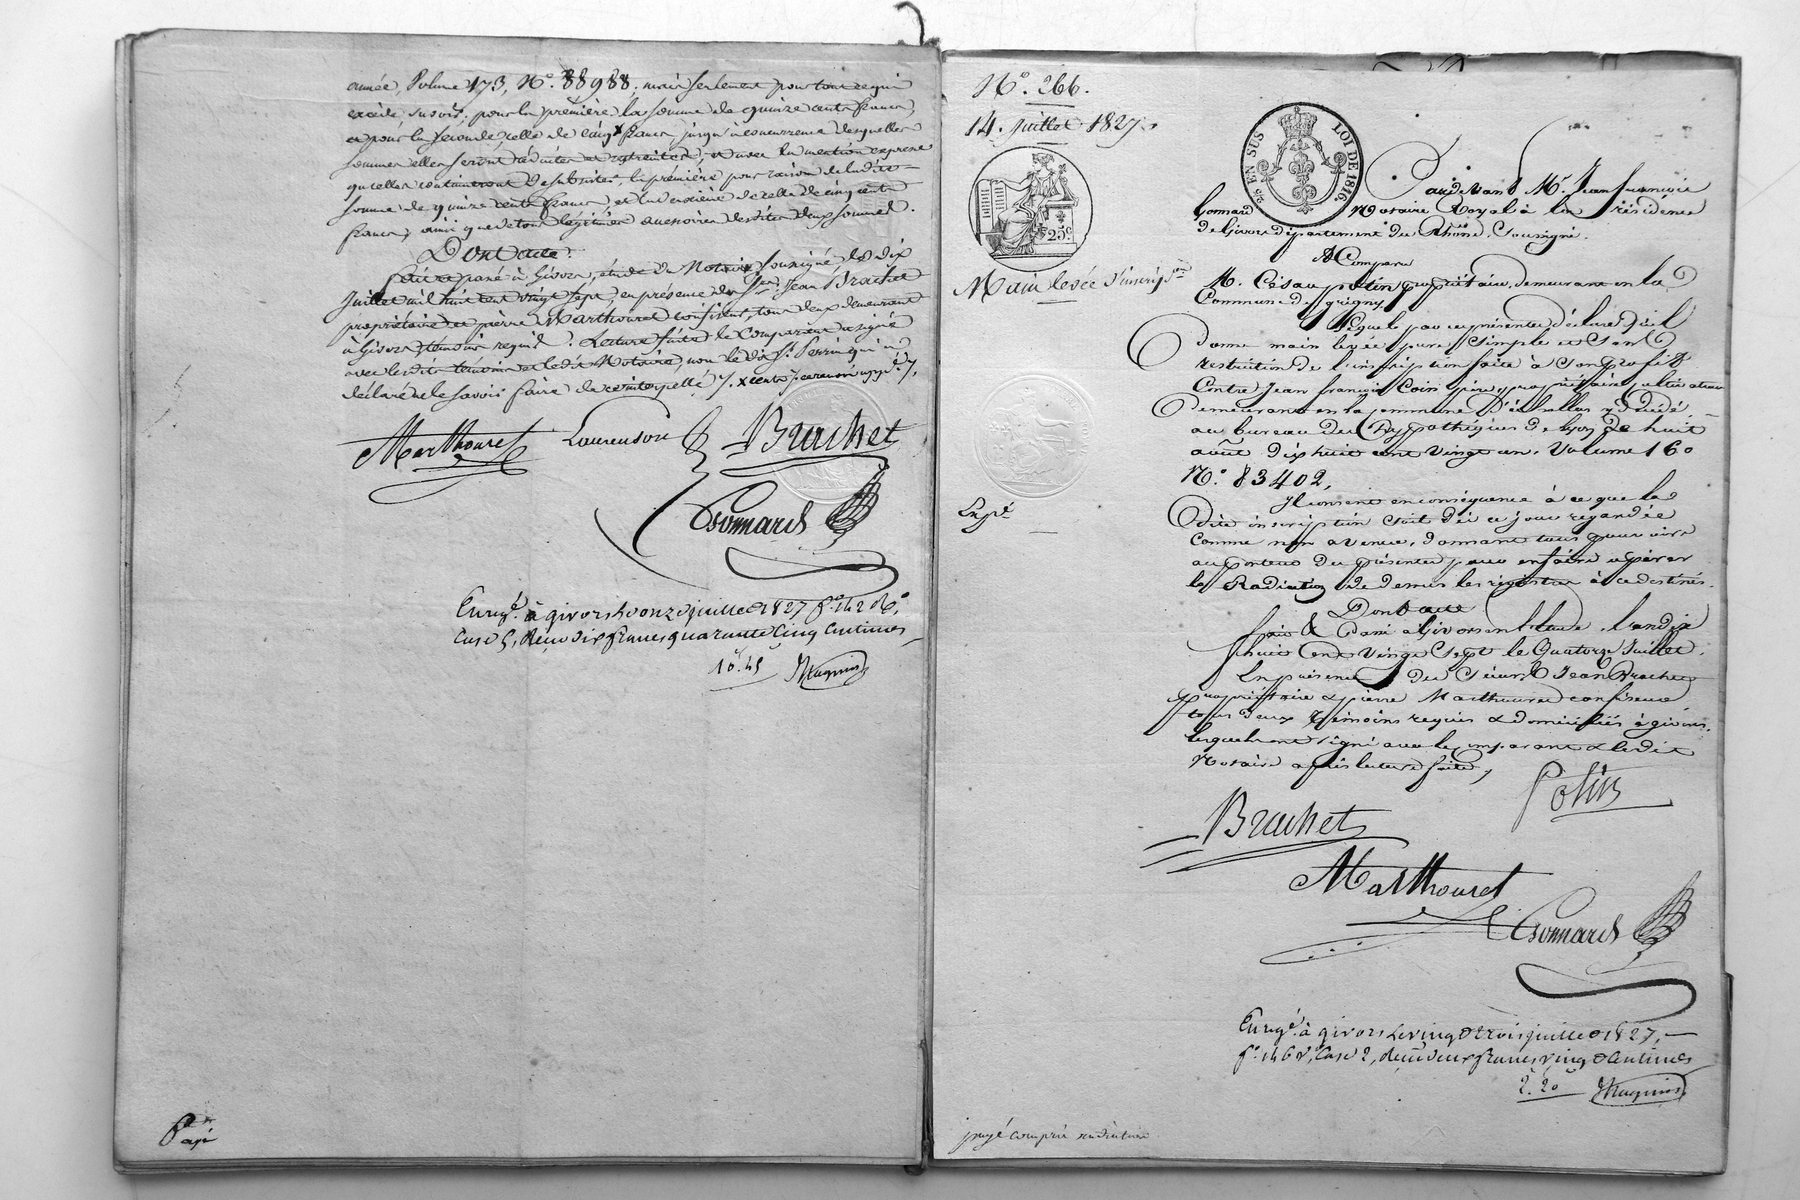 année, Volume 173, N.º 88988; mais seulement pour tout ce qui
excède, savoir; pour la première la somme de quinze cents francs,
et pour la seconde, celle de cinq x francs, jusqu'à concurrence desquelles
sommes elles seront réduites et restreintes; et avec la mention expresse
qu'elles continueront de subsister, la première pour raison de ladite
somme de quinze cents francs et la dernière de celle de cinq cents
francs; ainsi que de tous légitimes accessoires desdites deux sommes.
Dont acte.
fait et passé à Givors, étude du Notaire soussigné le dix
Juillet mil huit cent vingt sept, en présence des Srs. Jean Brachet
propriétaire et pierre Marthouret confiseur, tous deux demeurant
à Givors, témoins requis. Lecture faite le Comparant a signé
avec lesdits témoins et ledit Notaire, non led. Sr. Perrin qui a
déclaré ne le savoir faire de ce interpellé /. x cents /.
Marthouret Laurenson Brachet
Gonnard
Enregé. à givors le onze juillet 1827 fo. 142 Ro.
Case 5, Reçu dix francs quarante cinq centimes
10. 45
Payé
N.º 266.
14. juillet 1827.
25 EN SUS
LOI DE 1816
25 c
Main levée d'inscrip.on
Expé.
Pardevant Mr. Jean françois
Gonnard Notaire Royal à la résidence
de Givors département du Rhône, Soussigné.
A Comparu
M. César potin propriétaire, demeurant en la
Commune de grigny,
Lequel par ces présentes déclare qu'il
donne main levée pure & simple et sans
restriction de l'inscription faite à son profit
Contre Jean françois Coin père, propriétaire, cultivateur
demeurant en la commune d'échallas,
au bureau des hypothèques de Lyon le huit
août dix huit cent vingt un. Volume 160
N.º 83402,
Il consent en conséquence à ce que la
dite inscription soit dès ce jour regardée
comme non avenue, donnant tous pouvoirs
au porteur des présentes pour en faire opérer
la Radiation de dessus les registres à ce destinés.
Dont acte
fait & passé à Givors en l'étude, l'an dix
huit cent vingt sept le Quatorze Juillet.
En présence des Sieurs Jean Brachet
propriétaire & pierre Marthouret confiseur
tous deux témoins requis & domiciliés à givors,
lesquels ont signé avec le comparant & ledit
Notaire après lecture faite,
Potin
Brachet
Marthouret
Gonnard
Enregé. à givors le vingt trois juillet 1827,
fo. 146 Vo, Case 2, Reçu deux francs vingt Centimes
2. 20
payé compris radiation